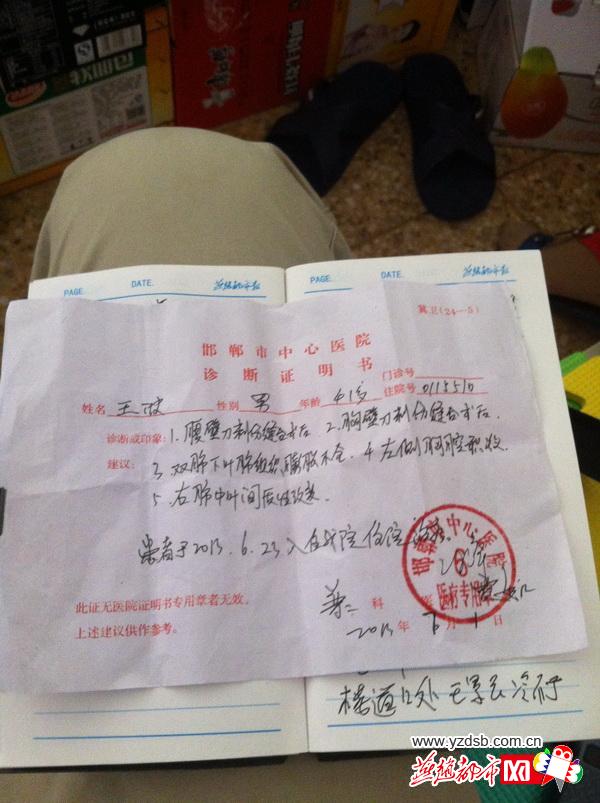 PAGE. DATE.
PAGE. DATE.
冀卫(24—5)
邯郸市中心医院
诊断证明书
门诊号
姓名 王 性别 男 年龄 41岁 住院号 0115510
诊断或印象: 1. 腹壁刀刺伤缝合术后 2. 胸壁刀刺伤缝合术后
建议: 3. 双肺下叶肺组织膨胀不全 4. 左侧胸腔积液
5. 右肺中叶间质性改变
患者于2013.6.23入住我院住院治疗
此证无医院证明书专用章者无效。
上述建议供作参考。
普二 科
2013年 月1日
邯郸市中心医院
医疗专用章
楼道口处
www.yzdsb.com.cn
燕赵都市网